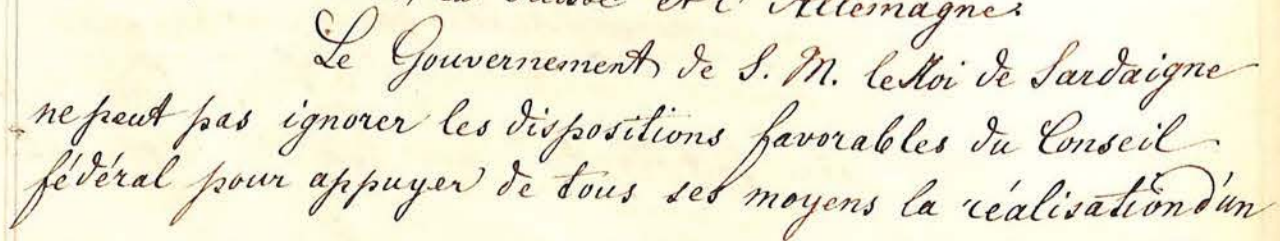 la Suisse et l'Allemagne.
Le Gouvernement de S. M. le Roi de Sardaigne
ne peut pas ignorer les dispositions favorables du Conseil
fédéral pour appuyer de tous ses moyens la réalisation d'un